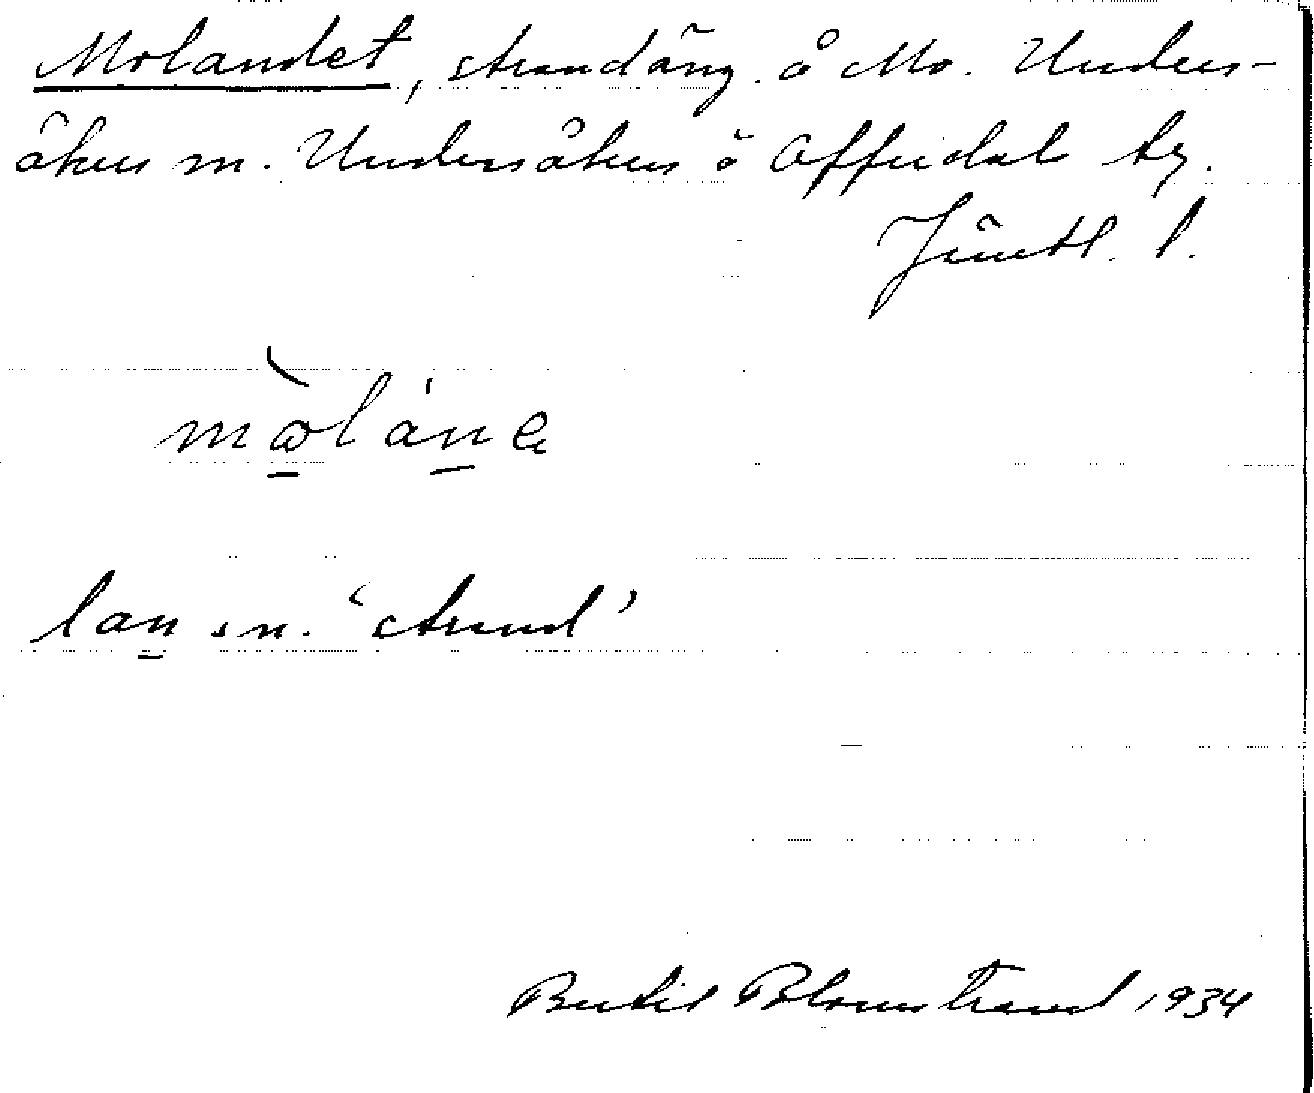 Molandet, strandäng å Mo. Unders-
åkers sn. Undersåkers o Offerdals tg.
Jämtl. l.
mòlánɐ
lan̠ sn. 'strand'
Bertil Blomstrand 1934